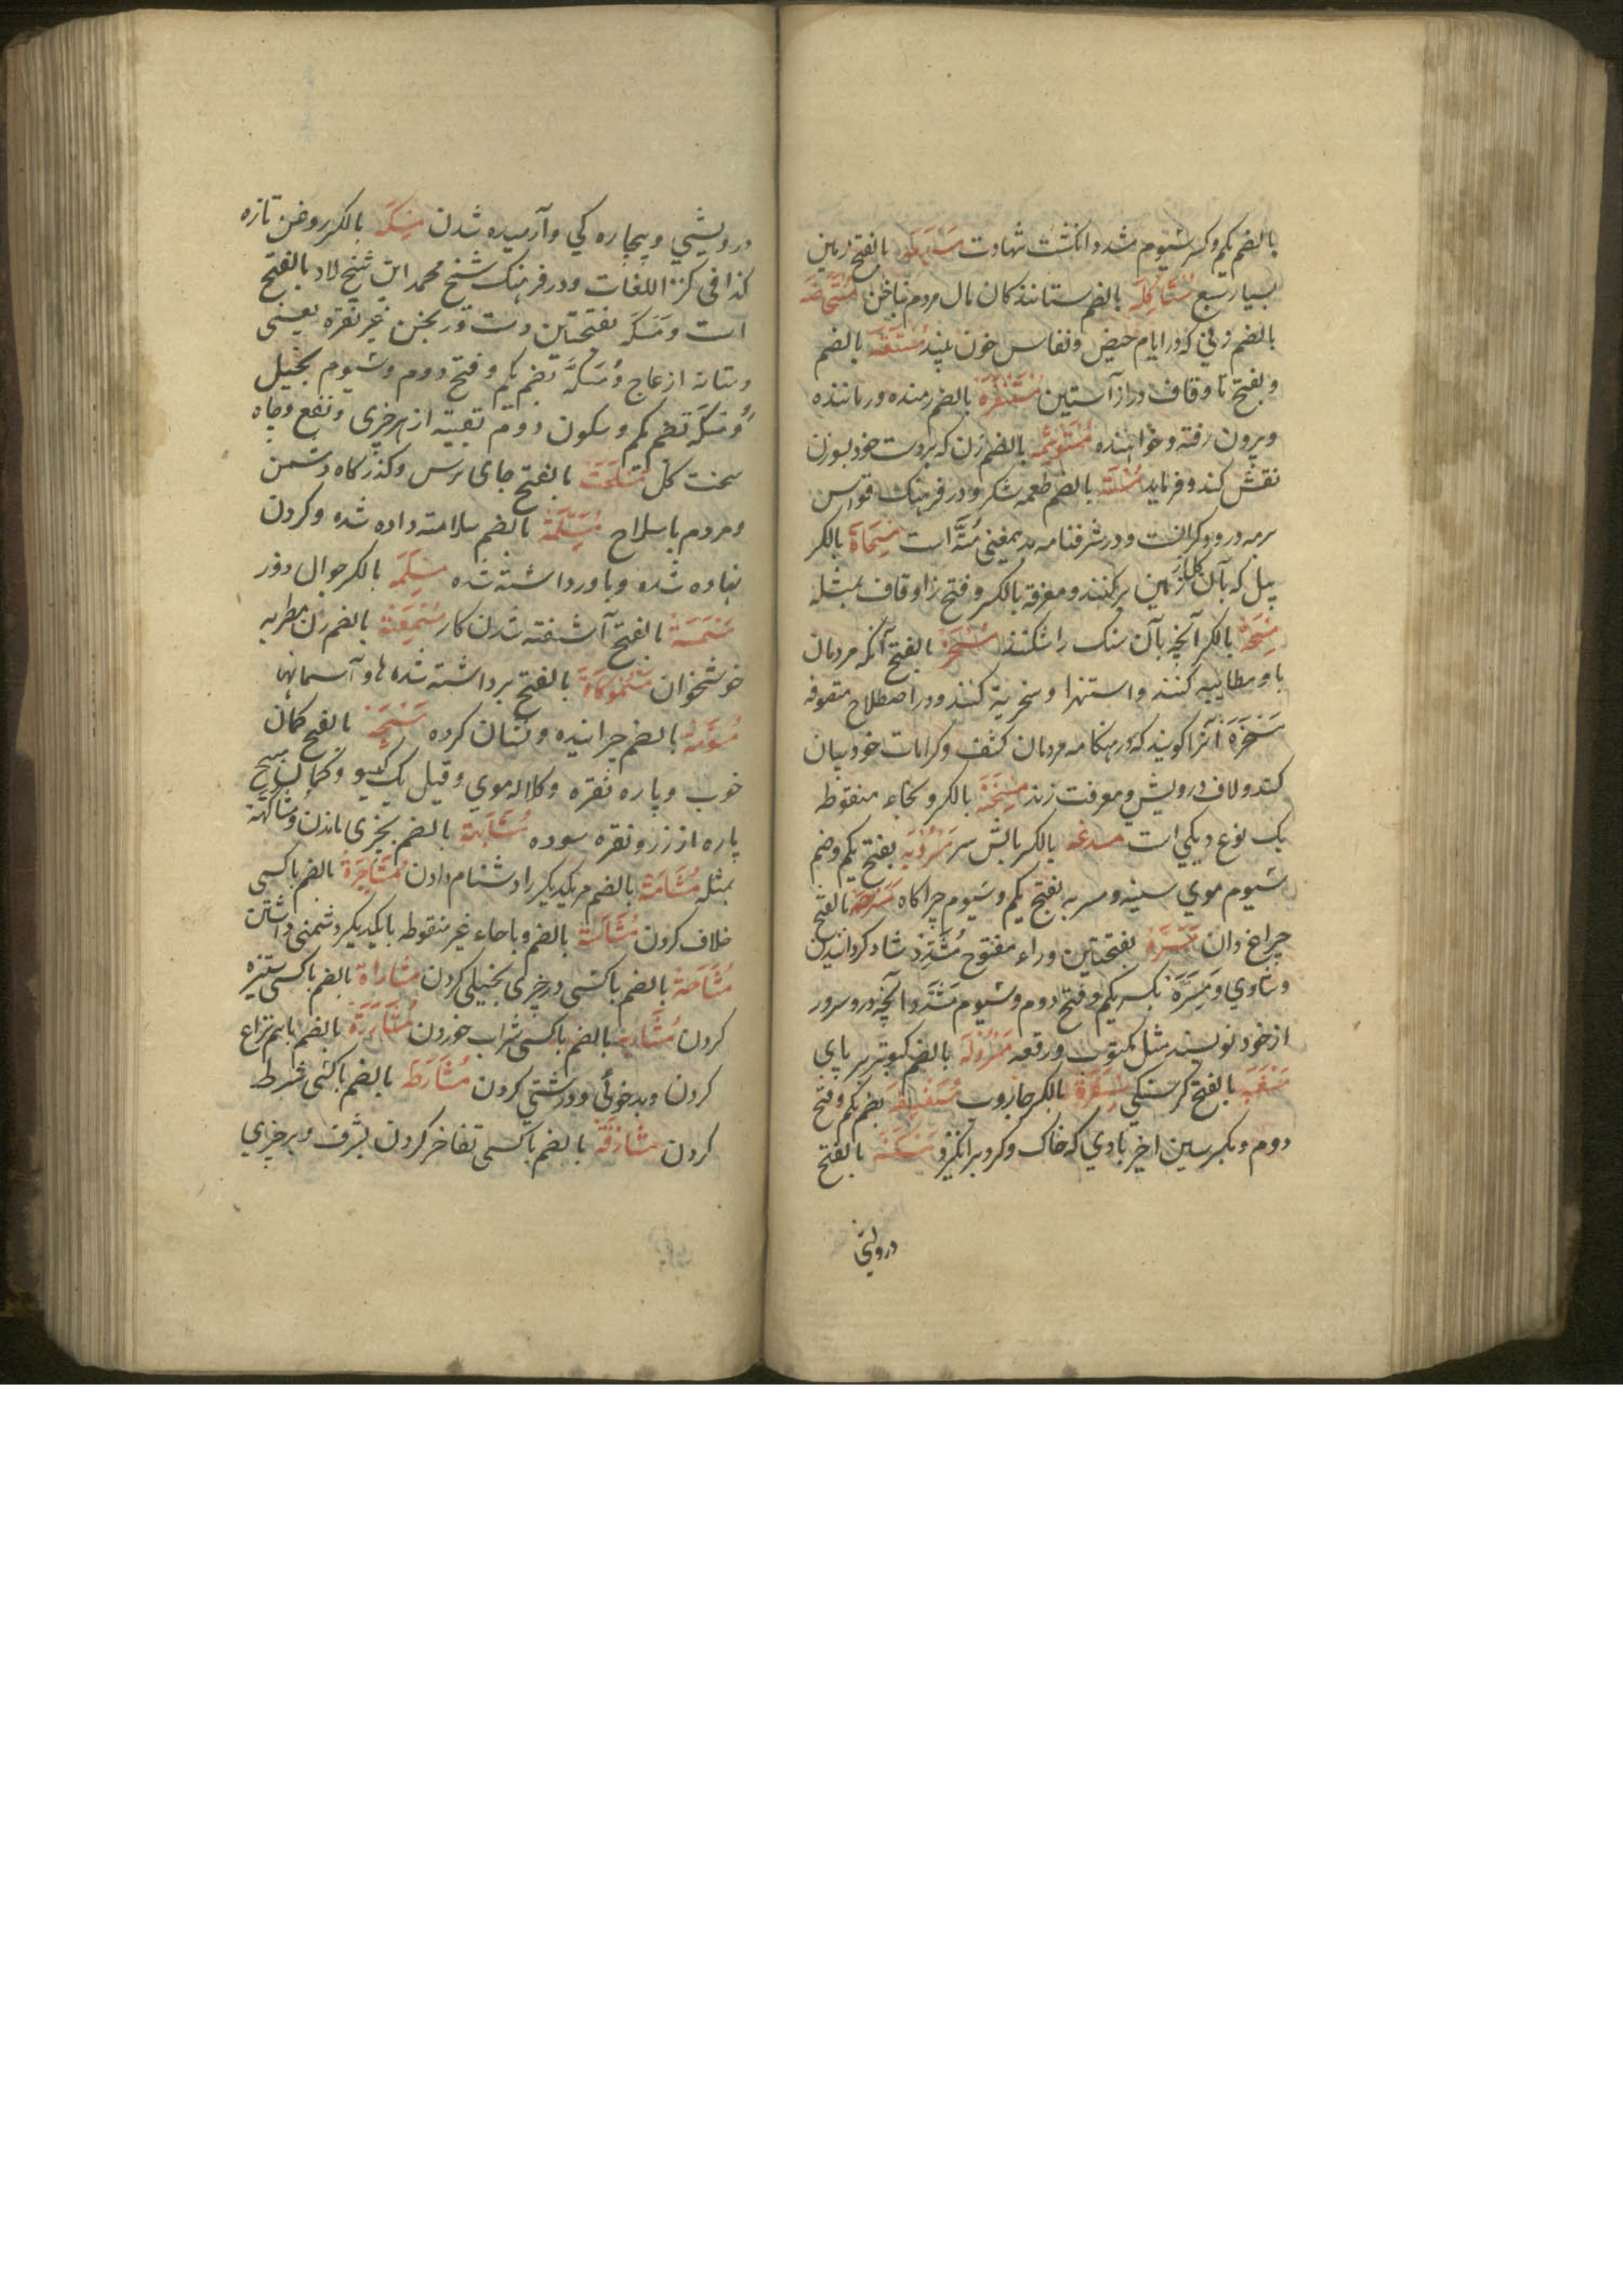 بالضم یکم وکسر سیوم مشدد انکشت شهادت مسبعه بالفتح زمین
بسیار سبع مستاکله بالضم ستانندکان مال مردم بناحق مستحاضه
بالضم زنی که در ایام حیض ونفاس خون بیند مستقه بالضم
وبفتح تا وقاف دراز آستین مستنفرة بالضم رمنده ورماننده
وبیرون رفته وخواهنده مستوشمه بالضم زن که بر دست خود بسوزن
نقش کند وفرماید مسته بالضم طعمه شکره ودر فرهنک قواس
برمه درودکرانست ودر شرفنامه بدینمعنی مته است مسحاة بالکسر
بیل که بآن کل از زمین برکنند ومعزقة بالکسر وفتح زا وقاف بمثله
بالکسر آنچه بآن سنک را شکنند مسخره بالفتح آنکه مردمان
باو مطایبه کنند واستهزا وسخریة کنند ودر اصطلاح متصوفه
مسخره آنرا کویند که در هنکامه مردمان کشف وکرامات خود بیان
کند ولاف درویشی ومعرفت زند مسخنة بالکسر وبخاء منقوطه
یک نوع دیکی است مسدغه بالکسر بالش سر مسربه بفتح یکم وضم
سیوم موی سینه ومسربه بفتح یکم وسیوم چراکاه مسرجة بالفتح
چراغ دان مسرة بفتحتین وراء مفتوح مشدد شاد کردانیدن
وشادی ومسرة بکسر یکم وفتح دوم وسیوم مشدد آنچه درو سرور
از خود نویسند مثل مکتوب ورقعه مسروله بالضم کبوتر پر پای
مسغبه بالفتح کرسنکی مسفرة بالکسر جاروب بضم یکم وفتح
دوم وبکسر سین اخیر بادی که خاک وکرد برانکیزد مسکنه بالفتح
درویشی
درویشی وبیچاره کی وآرمیده شدن مسکه بالکسر روغن تازه
کذا فی کنز اللغات ودر فرهنک شیخ محمد ابن شیخ لاد بالفتح
است ومسکه بفتحتین دست ورنجن غیر نقره یعنی
دستانه از عاج ومسکة بضم یکم وفتح دوم وسیوم بخیل
ومسکه بضم یکم وسکون دوم تقیبه از هر چیزی ونفع وچاه
سخت کل مسلحت بالفتح جای ترس وکذرکاه دشمن
ومردم با سلاح مسلمة بالضم سلامته داده شده وکردن
نهاده شده وباور داشته شده بالکسر جوال دوز
بالفتح آشفته شدن کار مسمعة بالضم زن مطربه
خوشخوان مسموکاة بالفتح برداشته شده ها وآسمانها
مسومة بالضم چرانیده ونشان کرده مسیحة بالفتح کمان
خوب وپاره نقره وکلاله موی وقیل یک کیسو وکمال مسیح
پاره از زر ونقره سوده مشابهة بالضم بچیزی ماندن ومشاکهة
بمثله مشاتمة بالضم مر یکدیکر را دشنام دادن مشاجرة بالضم باکسی
خلاف کردن بالضم وبا حاء غیر منقوطه با یکدیکر دشمنی داشتن
مشاحة بالضم باکسی در چیزی بخیلی کردن مشاراة بالضم باکسی ستیزه
کردن مشاربه بالضم باکسی شراب خوردن مشاررة بالضم باهم نزاع
کردن وبدخوئی ودرشتی کردن مشارطه بالضم باکسی شرط
کردن مشارفة بالضم باکسی تفاخر کردن بشرف وبر چیزی